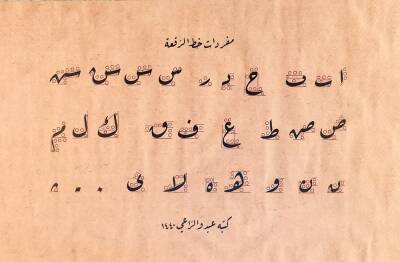 مفردات خط الرقعة
ا ب ت ح د ر س س س س س
ص ص ط ع ف ق ك ل م
ن ن و ه ه لا ي
كتبه عبدو الراعبي ١٤٤٠